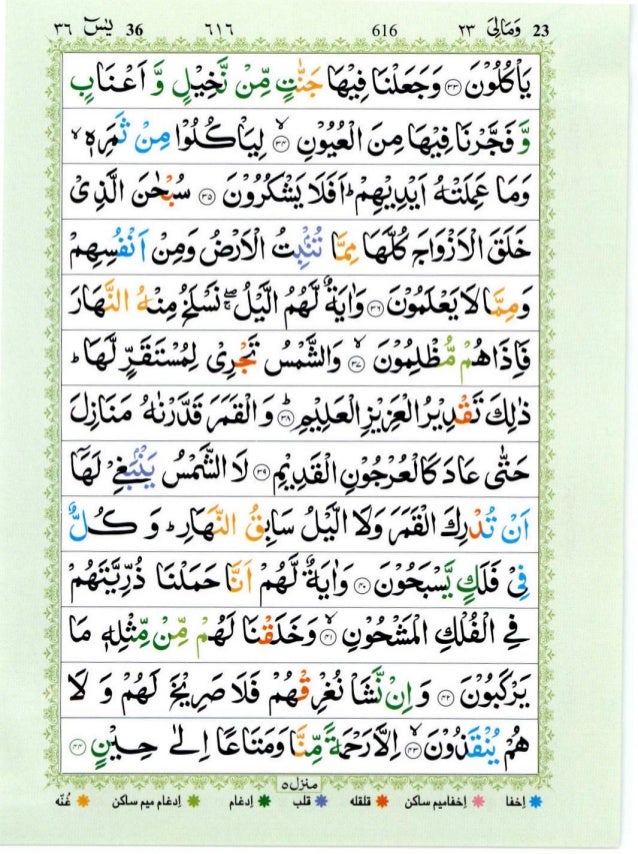 23 وَمَالِیَ ۲۳ 616 ٦١٦ 36 یٰسٓ ۳٦
یَاْكُلُوْنَ ﴿۳۳﴾ وَجَعَلْنَا فِیْهَا جَنّٰتٍ مِّنْ نَّخِیْلٍ وَّ اَعْنَابٍ
وَّ فَجَّرْنَا فِیْهَا مِنَ الْعُیُوْنِ ﴿۳۴﴾ۙ لِیَاْكُلُوْا مِنْ ثَمَرِهٖ ۙ
وَمَا عَمِلَتْهُ اَیْدِیْهِمْ ؕ اَفَلَا یَشْكُرُوْنَ ﴿۳۵﴾ سُبْحٰنَ الَّذِیْ
خَلَقَ الْاَزْوَاجَ كُلَّهَا مِمَّا تُنْۢبِتُ الْاَرْضُ وَمِنْ اَنْفُسِهِمْ
وَمِمَّا لَا یَعْلَمُوْنَ ﴿۳۶﴾ وَاٰیَةٌ لَّهُمُ الَّیْلُ ۖۚ نَسْلَخُ مِنْهُ النَّهَارَ
فَاِذَا هُمْ مُّظْلِمُوْنَ ﴿۳۷﴾ۙ وَالشَّمْسُ تَجْرِیْ لِمُسْتَقَرٍّ لَّهَا ؕ
ذٰلِكَ تَقْدِیْرُ الْعَزِیْزِ الْعَلِیْمِ ﴿۳۸﴾ؕ وَالْقَمَرَ قَدَّرْنٰهُ مَنَازِلَ
حَتّٰی عَادَ كَالْعُرْجُوْنِ الْقَدِیْمِ ﴿۳۹﴾ لَا الشَّمْسُ یَنْۢبَغِیْ لَهَاۤ
اَنْ تُدْرِكَ الْقَمَرَ وَلَا الَّیْلُ سَابِقُ النَّهَارِ ؕ وَ كُلٌّ
فِیْ فَلَكٍ یَّسْبَحُوْنَ ﴿۴۰﴾ وَاٰیَةٌ لَّهُمْ اَنَّا حَمَلْنَا ذُرِّیَّتَهُمْ
فِی الْفُلْكِ الْمَشْحُوْنِ ﴿۴۱﴾ۙ وَخَلَقْنَا لَهُمْ مِّنْ مِّثْلِهٖ مَا
یَرْكَبُوْنَ ﴿۴۲﴾ وَاِنْ نَّشَاْ نُغْرِقْهُمْ فَلَا صَرِیْخَ لَهُمْ وَ لَا
هُمْ یُنْقَذُوْنَ ﴿۴۳﴾ۙ اِلَّا رَحْمَةً مِّنَّا وَمَتَاعًا اِلٰی حِیْنٍ ﴿۴۴﴾
منزل ۵
اِخفا اِخفامیم ساکن قلقله قلب اِدغام اِدغام میم ساکن غُنّه